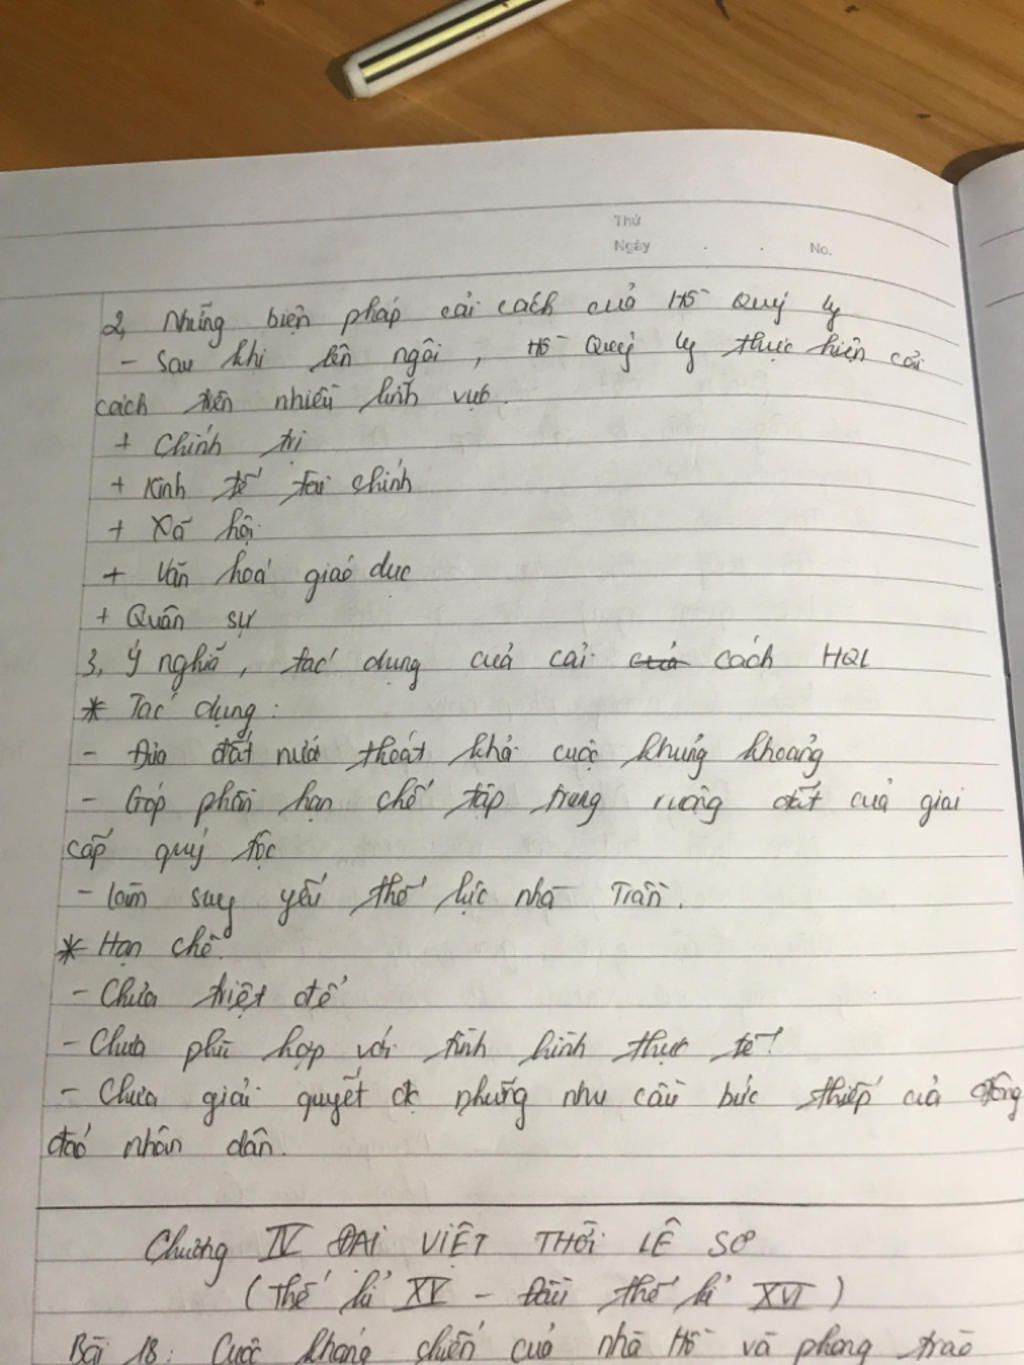 Thứ
Ngày . . No.
2, Những biện pháp cải cách của Hồ Quý Ly
- Sau khi lên ngôi, Hồ Quý Ly thực hiện cải
cách trên nhiều lĩnh vực.
+ Chính trị
+ Kinh tế tài chính
+ Xã hội
+ Văn hoá giáo dục
+ Quân sự
3, Ý nghĩa, tác dụng của cải của cách HQL
* Tác dụng:
- Đưa đất nước thoát khỏi cuộc khủng khoảng
- Góp phần hạn chế tập trung ruộng đất của giai
cấp quý tộc
- làm suy yếu thế lực nhà Trần.
* Hạn chế.
- Chưa triệt để
- Chưa phù hợp với tình hình thực tế
- Chưa giải quyết đc những nhu cầu bức thiếp của đông
đảo nhân dân.
Chương IV ĐẠI VIỆT THỜI LÊ SƠ
(Thế kỉ XV - Đầu thế kỉ XVI)
Bài 18: Cuộc kháng chiến của nhà Hồ và phong trào